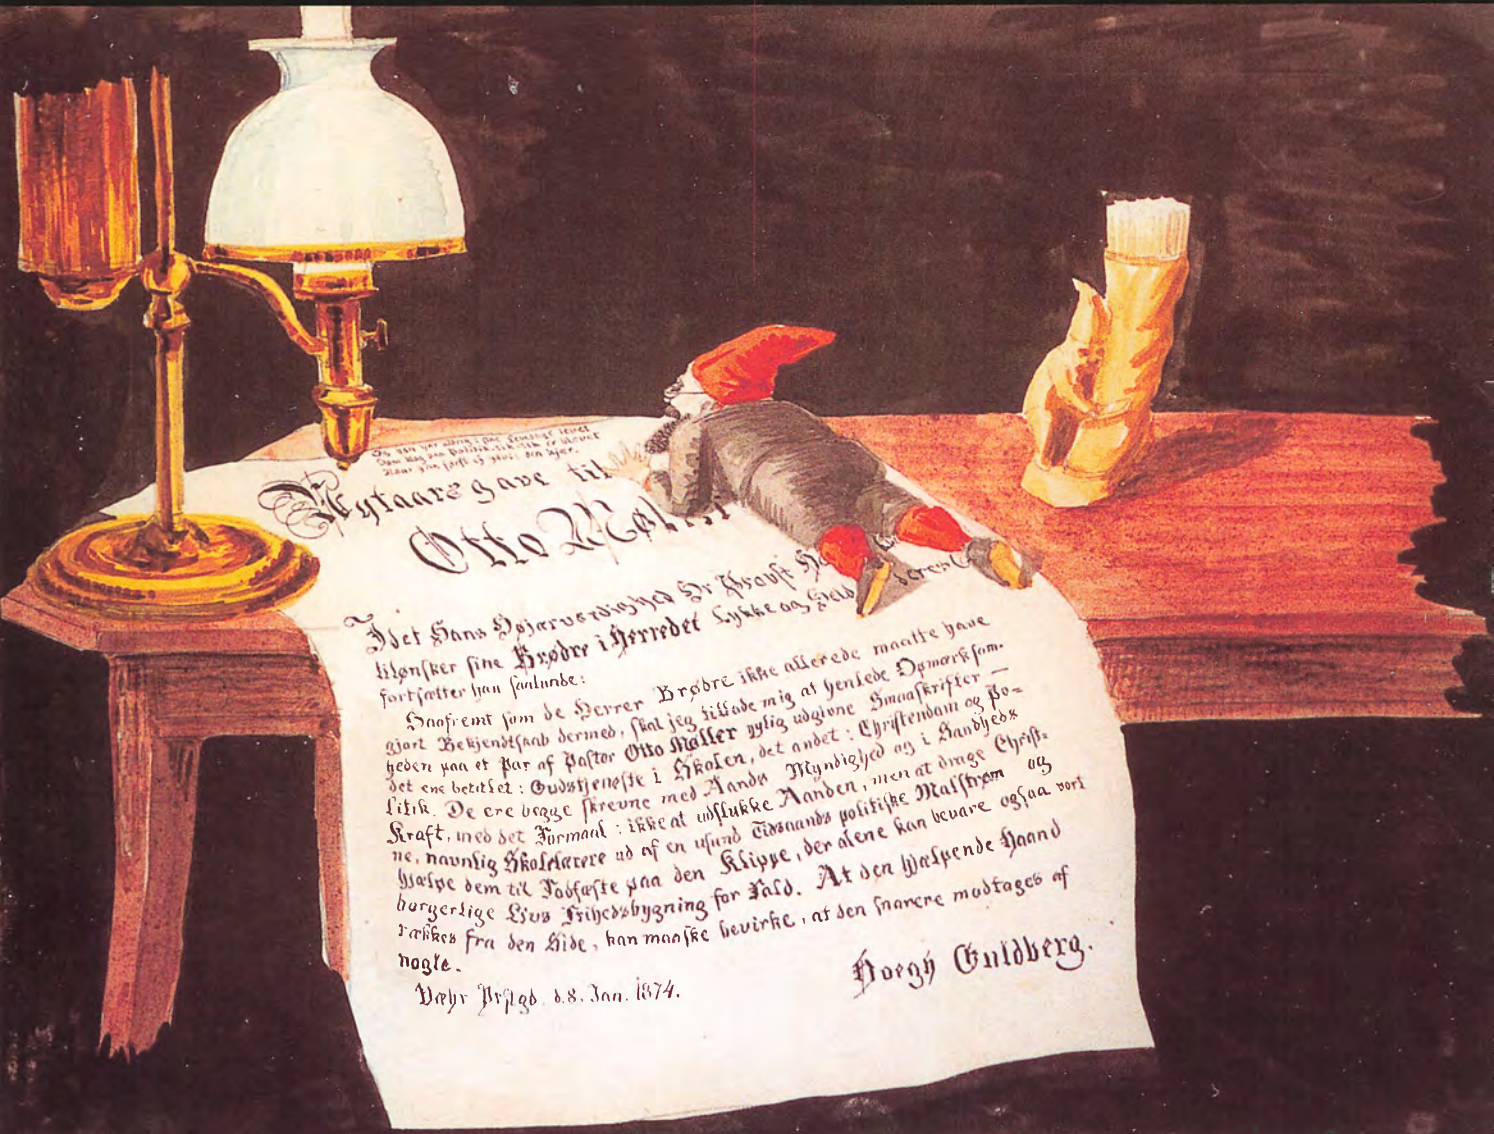 Og
Som Klog paa Politik
Naar
Nytaarsgave til
Otto Møll
Idet Hans Højærværdighed Hr Provst
tilønsker sine Brødre i Herredet Lykke og Held
fortsætter han saalunde:
Saafremt som de Herrer Brødre ikke allerede maatte have
gjort Bekjendtskab dermed, skal jeg tillade mig at henlede Opmærksom-
heden paa et Par af Pastor Otto Møller nylig udgivne Smaaskrifter —
det ene betitlet: Gudstjeneste i Skolen, det andet: Christendom og Po=
litik. De ere begge skrevne med Aands Myndighed og i Sandheds
Kraft, med det Formaal: ikke at udslukke Aanden, men at drage Christ-
ne, navnlig Skolelærere ud af en usund Tidsaands politiske Malstrøm og
hjælpe dem til Fodfæste paa den Klippe, der alene kan bevare ogsaa vort
borgerlige Livs Frihedsbygning for Fald. At den hjælpende Haand
rækkes fra den Side, kan maaske bevirke, at den snarere modtages af
nogle.
Væhr Prstgd. d. 8. Jan. 1874.
Hoegh Guldberg.